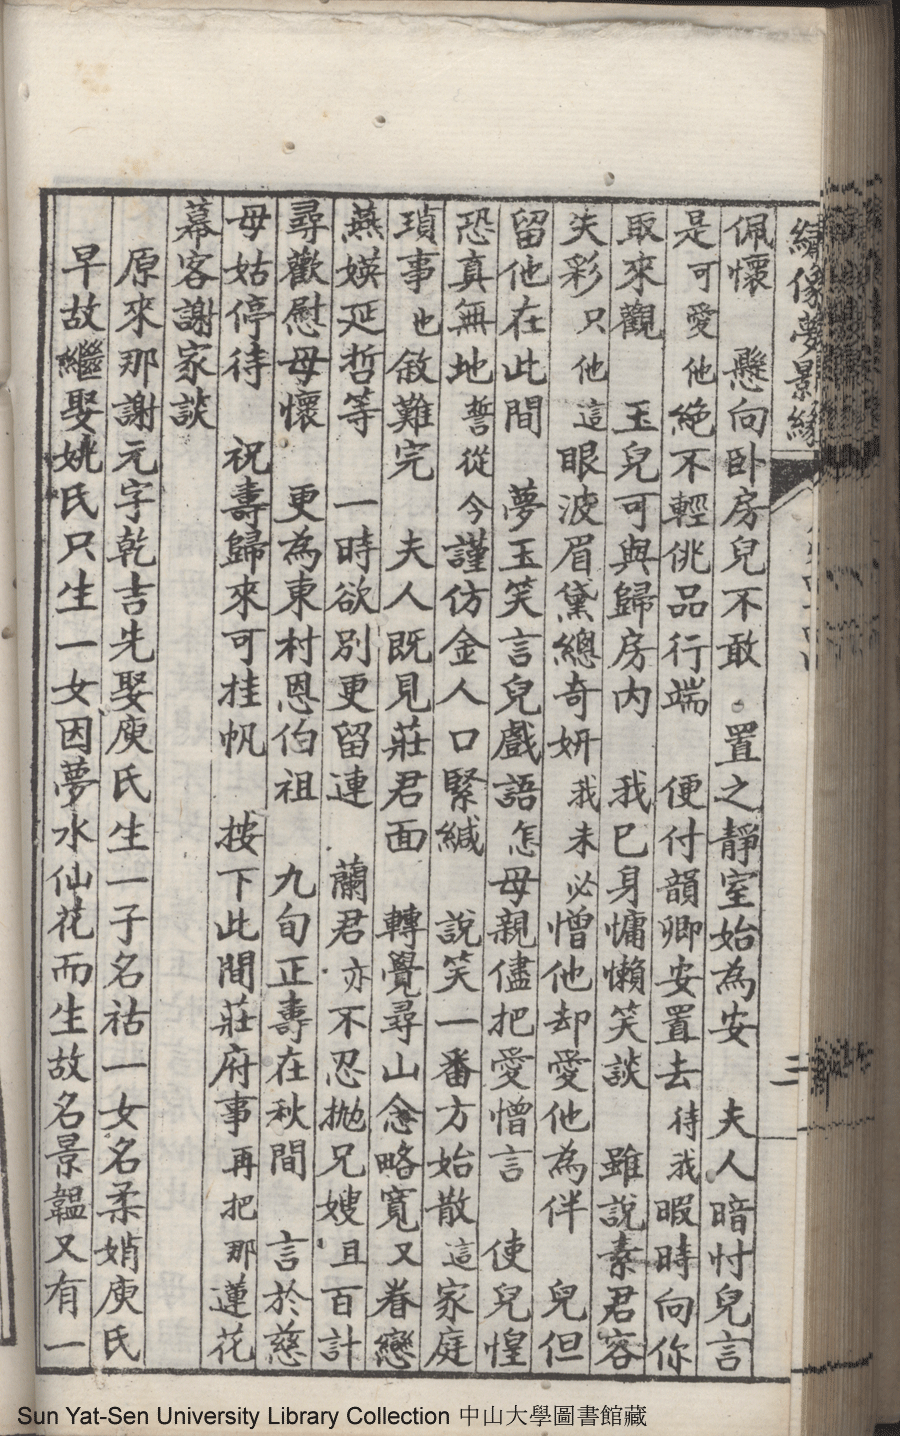 繡像夢景緣
三
佩懷　懸向卧房兒不敢　置之靜室始為安　夫人暗忖兒言
是可愛他絕不輕佻品行端　便付韻卿安置去　待我暇時向你
取來觀　玉兒可與歸房內　我已身慵懶笑談　雖說素君容
失彩只他這眼波眉黛總奇妍　我未必憎他却愛他為伴　兒但
留他在此間　夢玉笑言兒戲語　怎母親儘把愛憎言　使兒惶
恐真無地　誓從今謹仿金人口緊緘　說笑一番方始散　這家庭
瑣事也敘難完　夫人既見莊君面　轉覺尋山念略寬　又眷戀
燕媖延哲等　一時欲別更留連　蘭君亦不忍拋兄嫂　且百計
尋歡慰母懷　更為東村恩伯祖　九旬正壽在秋間　言於慈
母姑停待　祝壽歸來可挂帆　按下此間莊府事　再把那蓮花
幕客謝家談
原來那謝元字乾吉先娶庾氏生一子名祜一女名柔娋庾氏
早故繼娶姚氏只生一女因夢水仙花而生故名景韞又有一
Sun Yat-Sen University Library Collection 中山大學圖書館藏